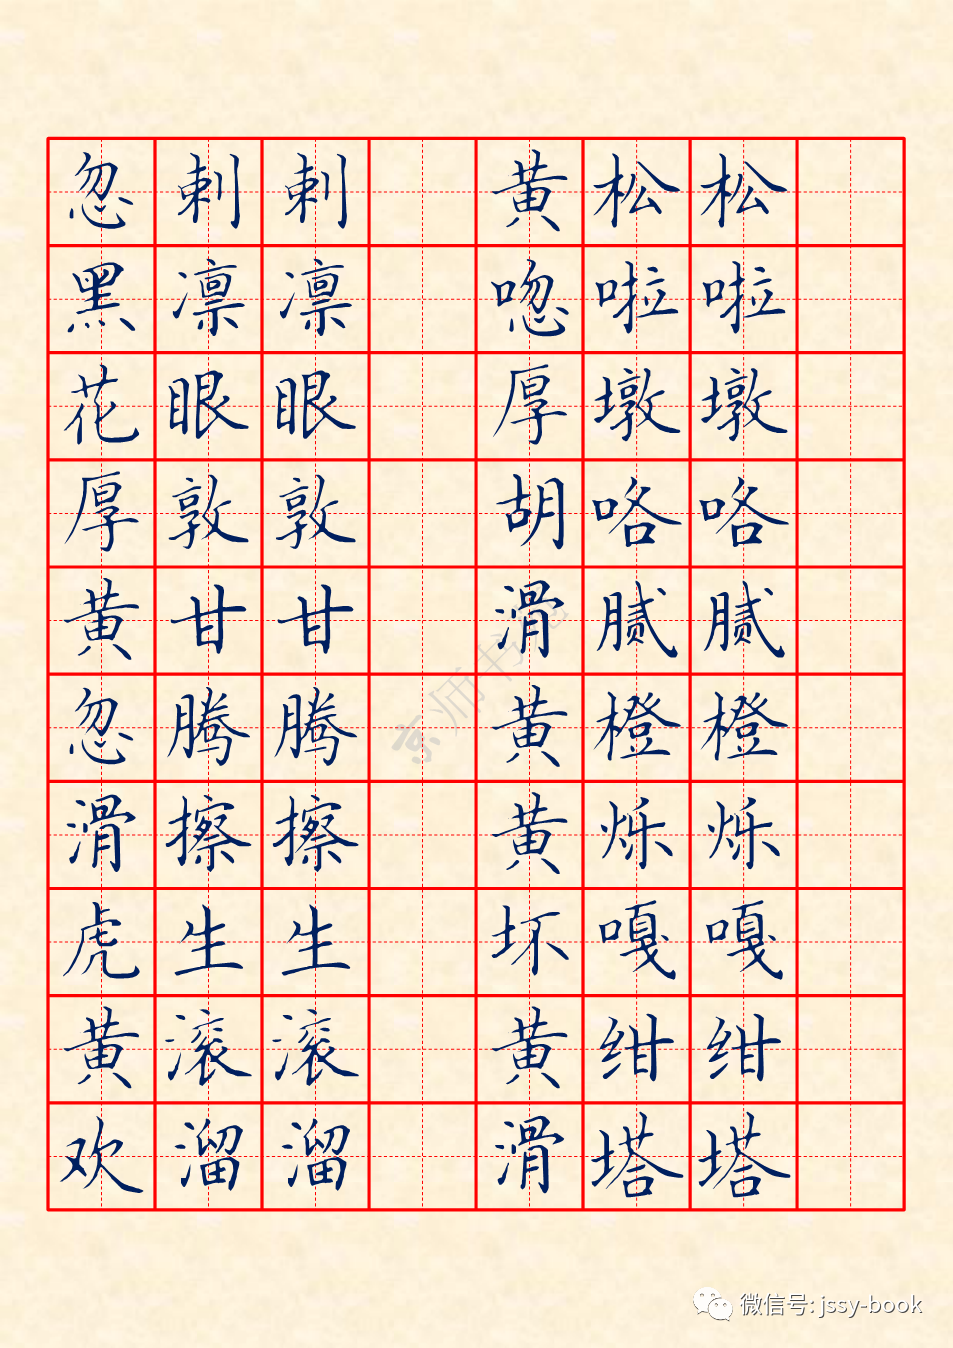 忽剌剌 黄松松
黑凛凛 唿啦啦
花眼眼 厚墩墩
厚敦敦 胡咯咯
黄甘甘 滑腻腻
忽腾腾 黄橙橙
滑擦擦 黄烁烁
虎生生 坏嘎嘎
黄滚滚 黄绀绀
欢溜溜 滑塔塔
京师书
微信号: jssy-book